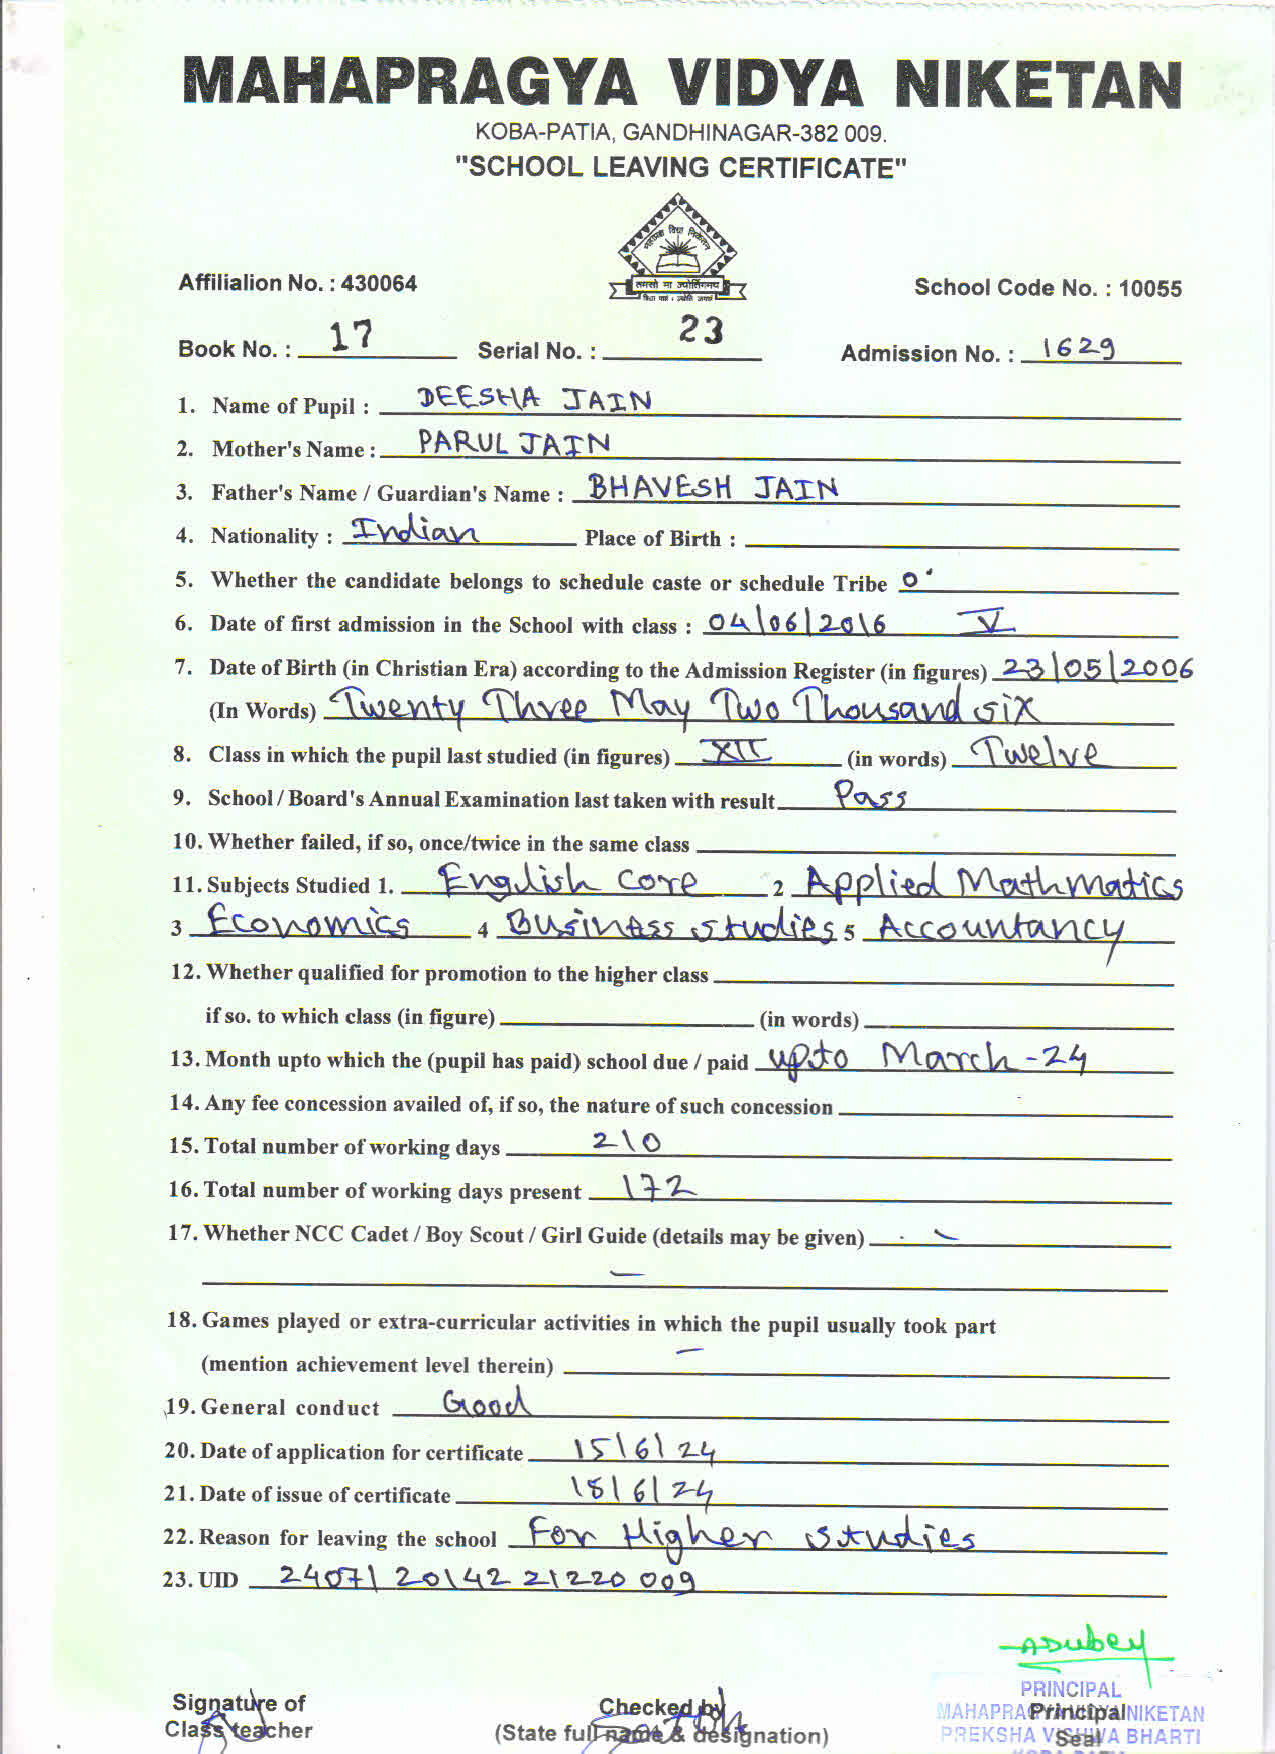 MAHAPRAGYA VIDYA NIKETAN
KOBA-PATIA, GANDHINAGAR-382 009.
"SCHOOL LEAVING CERTIFICATE"
महाप्रज्ञ विद्या निकेतन
तमसो मा ज्योतिर्गमय
Affilialion No. : 430064
School Code No. : 10055
Book No. : 17 Serial No. : 23 Admission No. : 1629
1. Name of Pupil : DEESHA JAIN
2. Mother's Name : PARUL JAIN
3. Father's Name / Guardian's Name : BHAVESH JAIN
4. Nationality : Indian Place of Birth :
5. Whether the candidate belongs to schedule caste or schedule Tribe
6. Date of first admission in the School with class : 04/06/2016 V
7. Date of Birth (in Christian Era) according to the Admission Register (in figures) 23/05/2006
(In Words) Twenty Three May Two Thousand Six
8. Class in which the pupil last studied (in figures) XII (in words) Twelve
9. School / Board's Annual Examination last taken with result Pass
10. Whether failed, if so, once/twice in the same class
11. Subjects Studied 1. English Core 2 Applied Mathmatics
3 Economics 4 Business studies 5 Accountancy
12. Whether qualified for promotion to the higher class
if so. to which class (in figure) (in words)
13. Month upto which the (pupil has paid) school due / paid upto March-24
14. Any fee concession availed of, if so, the nature of such concession
15. Total number of working days 210
16. Total number of working days present 172
17. Whether NCC Cadet / Boy Scout / Girl Guide (details may be given) -
-
18. Games played or extra-curricular activities in which the pupil usually took part
(mention achievement level therein) -
19. General conduct Good
20. Date of application for certificate 15/6/24
21. Date of issue of certificate 18/6/24
22. Reason for leaving the school For Higher studies
23. UID 24071 20142 21220 009
ADubey
PRINCIPAL
MAHAPRAGYA VIDYA NIKETAN
PREKSHA VISHWA BHARTI
Signature of
Class teacher
Checked by
(State full name & designation)
Principal
Seal